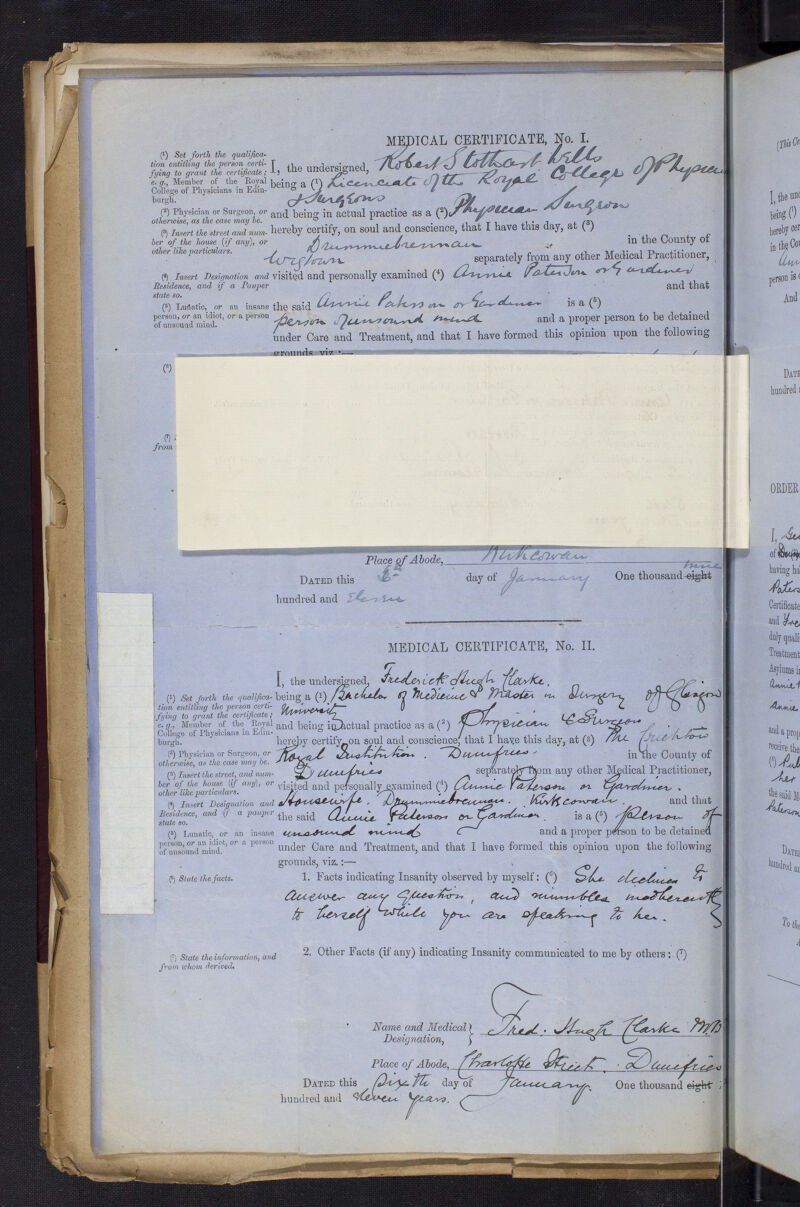 MEDICAL CERTIFICATE, No. I.
(1) Set forth the qualification entitling the person certifying to grant the certificate; e.g., Member of the Royal College of Physicians in Edinburgh.
(2) Physician or Surgeon, or otherwise, as the case may be.
(3) Insert the street and number of the house (if any), or other like particulars.
(4) Insert Designation and Residence, and if a Pauper state so.
(5) Lunatic, or an insane person, or an idiot, or a person of unsound mind.
(6)
(7)
from
I, the undersigned, Robert Stothart Wells
being a (1) Licenciate of the Royal College of Physician
& Surgeons
and being in actual practice as a (2) Physician Surgeon
hereby certify, on soul and conscience, that I have this day, at (3)
Drummiebrennan in the County of
Wigtown separately from any other Medical Practitioner,
visited and personally examined (4) Annie Paterson or Gardiner
and that
the said Annie Paterson or Gardiner is a (5)
person of unsound mind and a proper person to be detained
under Care and Treatment, and that I have formed this opinion upon the following
grounds viz:—
Place of Abode, Kirkcowan
DATED this 6th day of January One thousand eight nine
hundred and Eleven
MEDICAL CERTIFICATE, No. II.
(1) Set forth the qualification entitling the person certifying to grant the certificate; e.g., Member of the Royal College of Physicians in Edinburgh.
(2) Physician or Surgeon, or otherwise, as the case may be.
(3) Insert the street, and number of the house (if any), or other like particulars.
(4) Insert Designation and Residence, and if a pauper state so.
(5) Lunatic, or an insane person, or an idiot, or a person of unsound mind.
(6) State the facts.
(7) State the information, and from whom derived.
I, the undersigned, Frederick Hugh Clarke.
being a (1) Bachelor of Medicine & Master in Surgery of Glasgow
University
and being in actual practice as a (2) Physician & Surgeon
hereby certify, on soul and conscience, that I have this day, at (3) The Crichton
Royal Institution. Dumfries. in the County of
Dumfries separately from any other Medical Practitioner,
visited and personally examined (4) Annie Paterson or Gardiner.
Housewife. Drummiebrennan. Kirkcowan. and that
the said Annie Paterson or Gardiner. is a (5) person of
unsound mind and a proper person to be detained
under Care and Treatment, and that I have formed this opinion upon the following
grounds, viz.:—
1. Facts indicating Insanity observed by myself: (6) She declines to
answer any question, and mumbles
to herself while you are speaking to her.
2. Other Facts (if any) indicating Insanity communicated to me by others: (7)
Name and Medical Designation, Fred: Hugh Clarke M.B
Place of Abode, Charlotte Street. Dumfries
DATED this Sixth day of January. One thousand eight
hundred and eleven years.
(This Ce
I, the und
being (1)
hereby cer
in the Co
person is
And
DATE
hundred a
ORDER
I,
of
having ha
Paters
Certificate
and
duly quali
Treatment
Asylums i
Annie
Annie
and a prop
receive the
her
the said M
Paterson
DATED
hundred an
To the